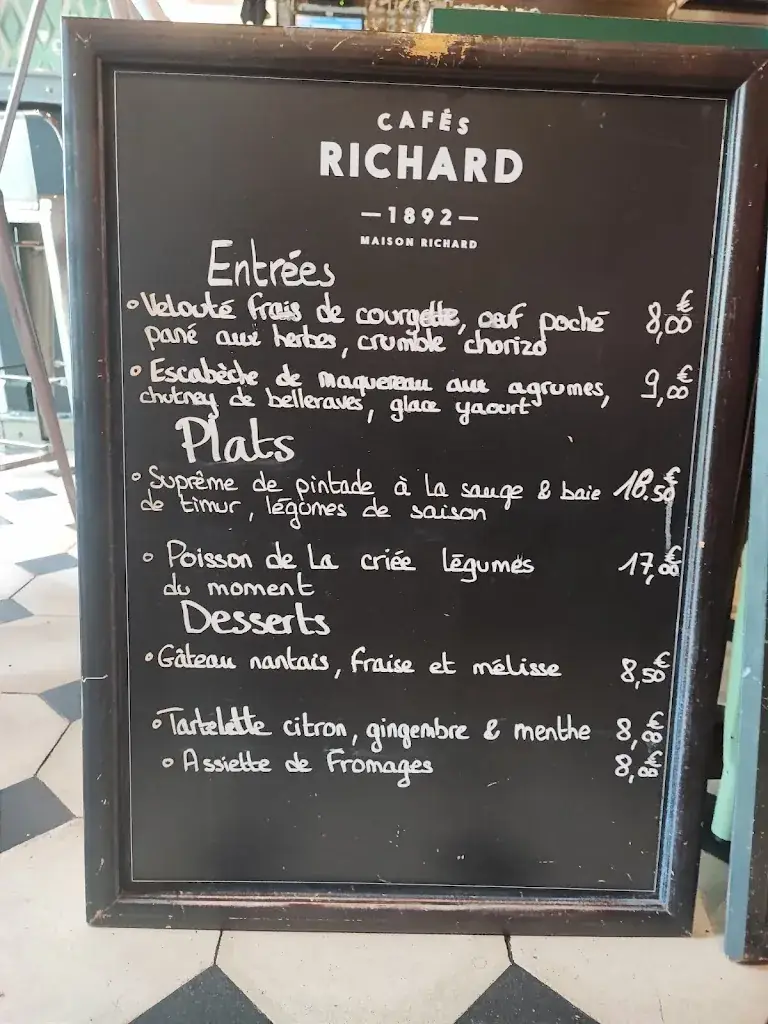 CAFÉS
RICHARD
—1892—
MAISON RICHARD
Entrées
°Velouté frais de courgette, œuf poché 8,00€
pané aux herbes, crumble chorizo
° Escabèche de maquereau aux agrumes, 9,00€
chutney de betteraves, glace yaourt
Plats
° Suprême de pintade à la sauge & baie 18.50€
de timur, légumes de saison
° Poisson de La criée légumes 17,00€
du moment
Desserts
°Gâteau nantais, fraise et mélisse 8,50€
°Tartelette citron, gingembre & menthe 8,00€
° Assiette de Fromages 8,00€